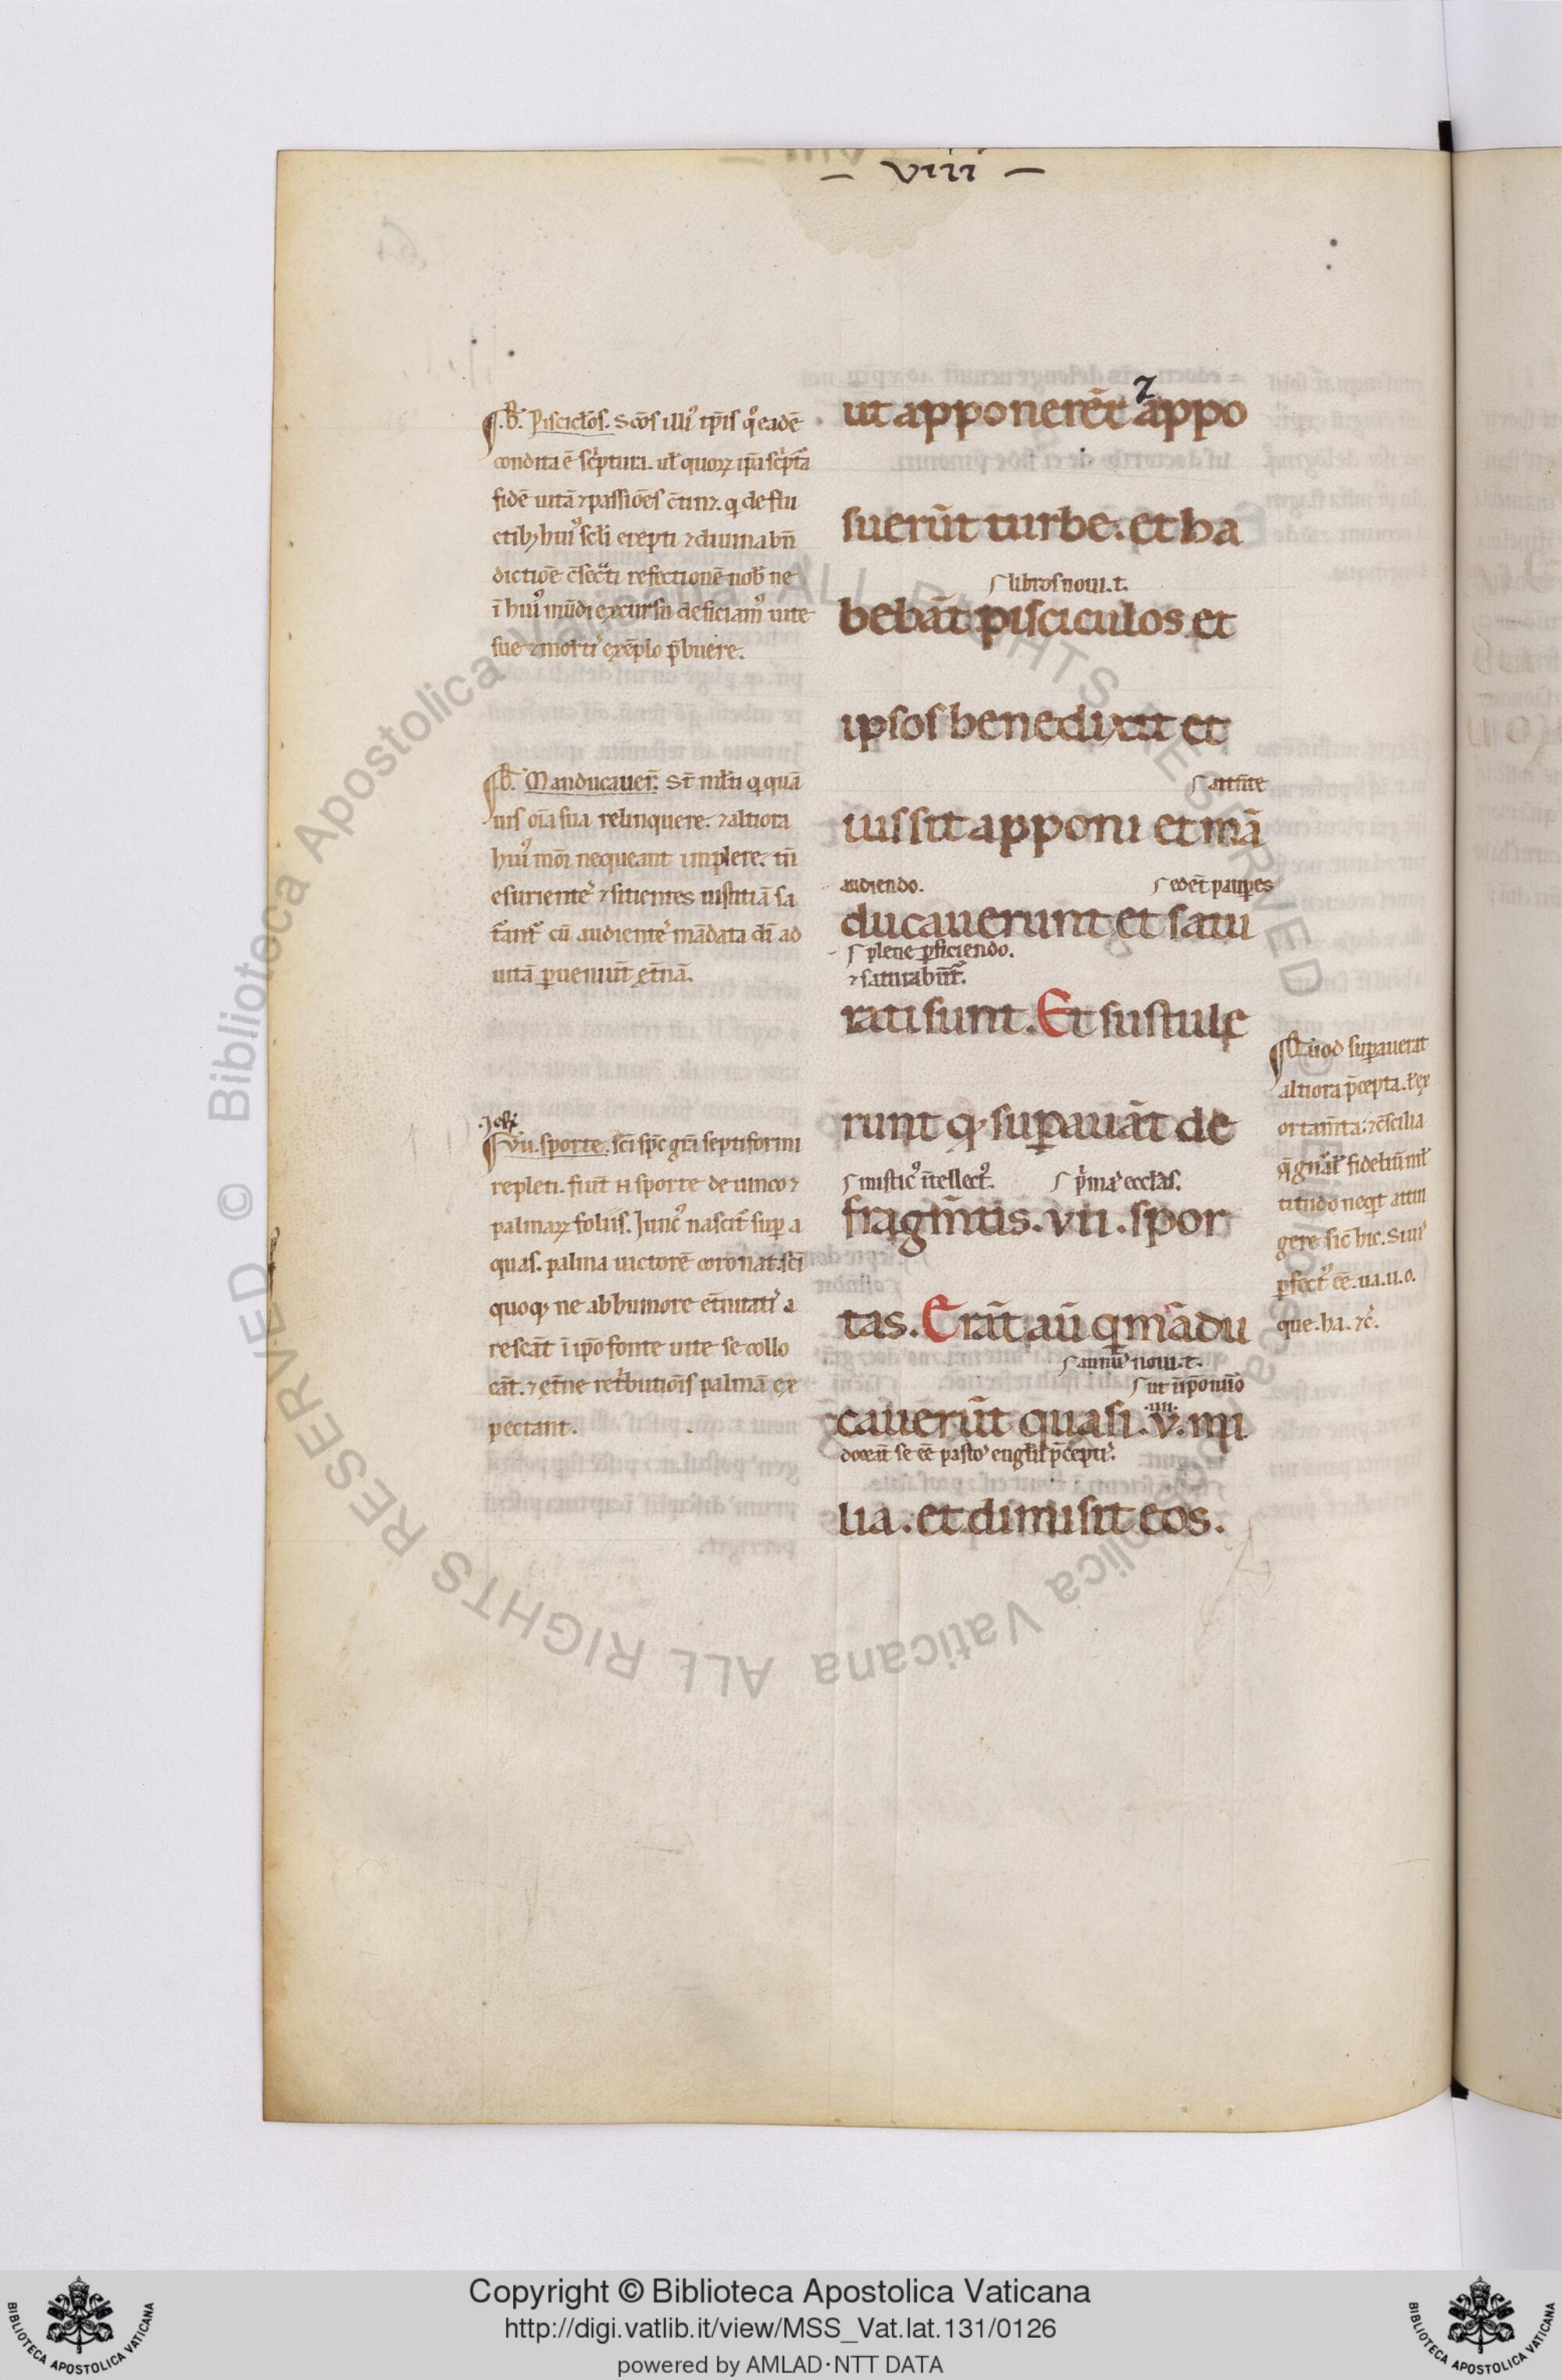 — viii —
.B. Pisciclos. Scōs illi⁹ tp̄is q͛ eadē
condita ē sc͛ptura. ul̄ quoꝝ ip̄a sc͛pta
fidē uitā ⁊ passiōes ↄ̄tinꝫ. q de flu
ctibꝫ hui⁹ scl̄i erepti ⁊ diuina bn̄
dictiōe ↄ̄sec͛ti refectionē nob̄ ne
ī hui⁹ mūdi excursu deficiam⁹ uite
sue ⁊ morti͛ exēplo p͛buere.
B. Manducauer̄. St̄ ml̄ti q quā
uis oīa sua relinquere. ⁊ altiora
hui⁹ moī nequeant implere. tn̄
esuriente͛ ⁊ sitientes iustitiā sa
t̄ant͛ cū audiente͛ mādata dī ad
uitā ꝑueniūt et̄nā.
.Iero͛.
Vii. sporte. scī sp̄c gr̄a septiformi
repleti. fiūt n̄ sporte de iunco ⁊
palmaꝝ foliis. Iunc⁹ nascit͛ suꝑ a
quas. palma uictorē coronat. scī
quoqꝫ ne ab humore et̄nitati͛ a
rescāt ī ip̄o fonte uite se collo
cāt. ⁊ et̄ne ret͛butiōis palmā ex
pectant.
ut apponerēt ⁊ appo
suerūt turbe. et ha
libros noui. t.
bebāt pisciculos et
ipsos benedixit et
attn̄te
iussit apponi et mā
audiendo.
edēt pauꝑes
ducauerunt et satu
plene ꝑficiendo.
⁊ saturabūt͛.
rati sunt. Et sustule
runt qꝫ suꝑauāt de
mistic⁹ ītellect⁹.
p͛ma͛ eccl̄as.
fragm̄tis. vii. spor
tas. Erāt aū q̄ mādu
noui. t.
cauerūt quasi .iiii. v. mi
docēt se ēē pasto͛ eugl̄ii p̄cepti͛.
lia. et dimisit eos.
Quod suꝑauerat
altiora p̄cepta. ł ex
ortam̄ta. ⁊ ↄ̄silia
q̄ gn̄al̄ fideliū ml̄
titudo neqt͛ attin
gere sic̄ hic. Si uis
ꝑfect⁹ ēē. ua. u. o.
que. ha. ⁊c͛.
Copyright © Biblioteca Apostolica Vaticana
http://digi.vatlib.it/view/MSS_Vat.lat.131/0126
powered by AMLAD·NTT DATA
BIBLIOTECA APOSTOLICA VATICANA
BIBLIOTECA APOSTOLICA VATICANA
© Biblioteca Apostolica Vaticana ALL RIGHTS RESERVED
© Biblioteca Apostolica Vaticana ALL RIGHTS RESERVED